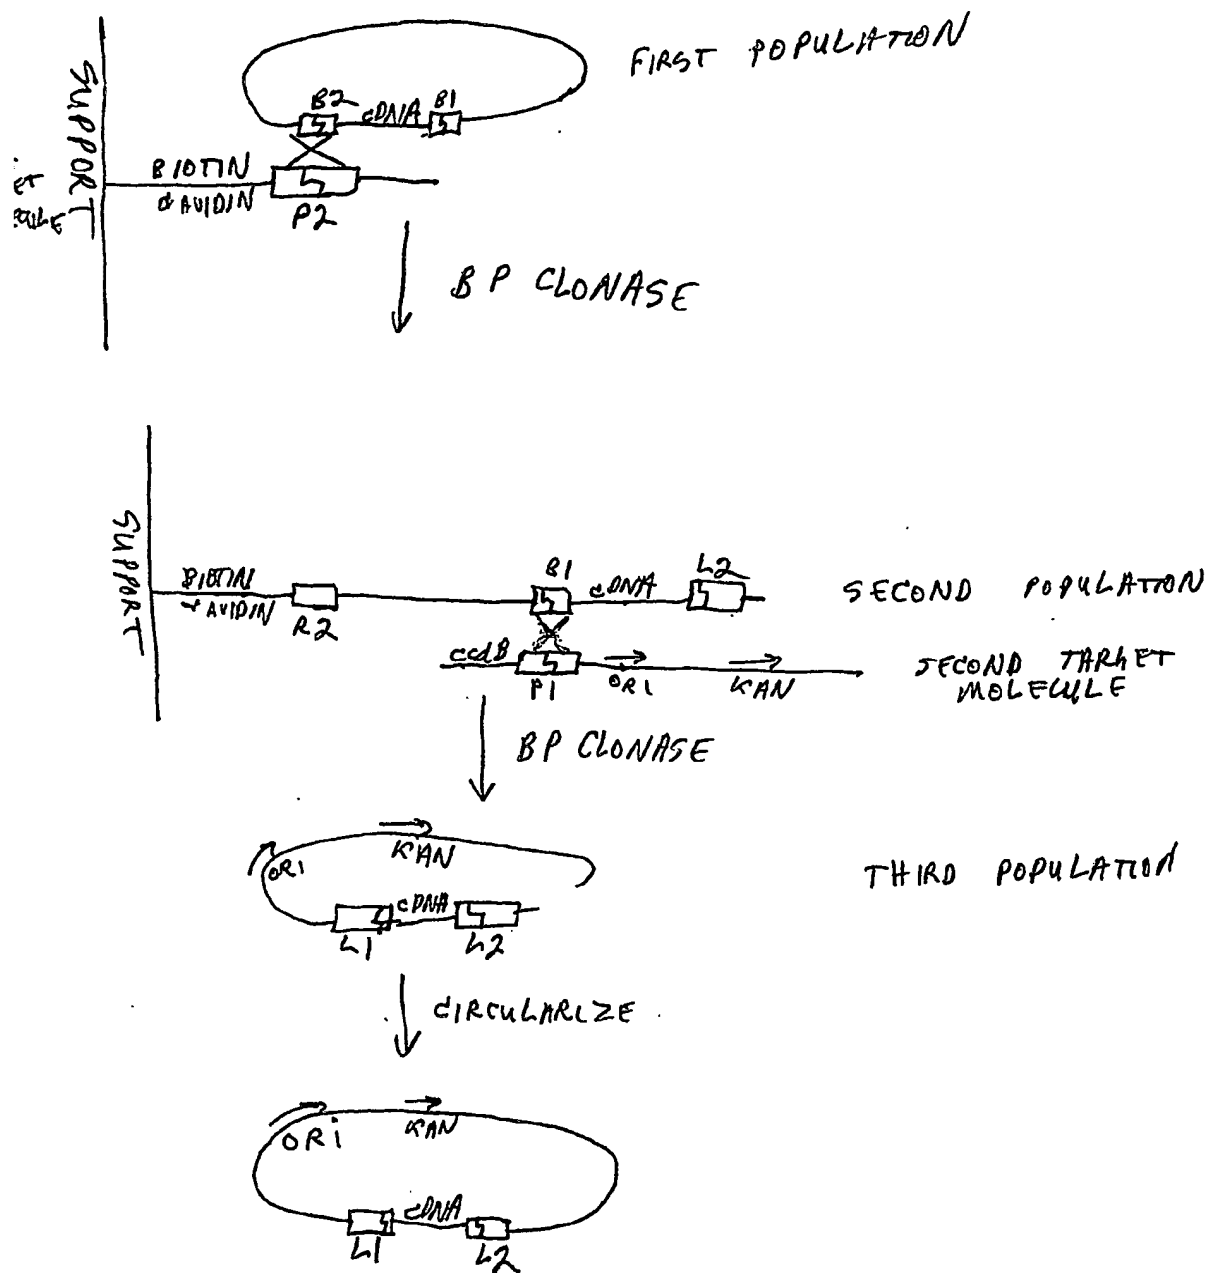 FIRST POPULATION
SUPPORT
B2 cDNA B1
BIOTIN
AVIDIN
P2
BP CLONASE
SUPPORT
BIOTIN
AVIDIN
R2
B1 cDNA L2
SECOND POPULATION
ccdB P1 ORI KAN
SECOND TARGET
MOLECULE
BP CLONASE
ORI KAN
THIRD POPULATION
L1 cDNA L2
CIRCULARIZE
ORi KAN
L1 cDNA L2